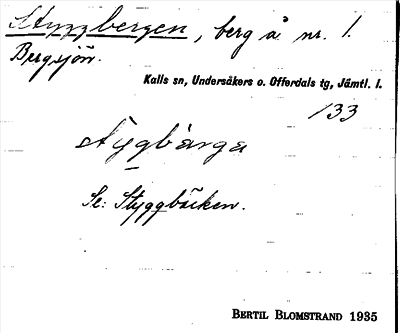 Styggbergen, berg å nr. 1.
Bergsjön.
Kalls sn, Undersåkers o. Offerdals tg, Jämtl. l.
133
stỳgbàrga
Se: Styggbäcken.
BERTIL BLOMSTRAND 1935